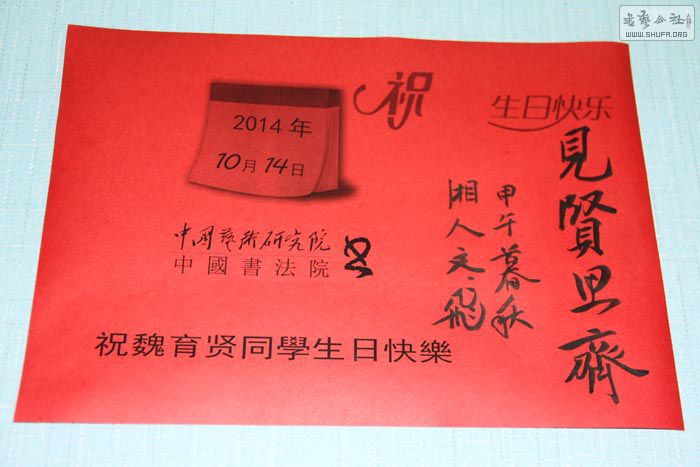 書藝公社
WWW.SHUFA.ORG
祝
生日快乐
2014 年
10月 14日
見賢思齊
甲午暮秋
湘人文飛
中国藝術研究院
中國書法院
祝魏育贤同學生日快樂